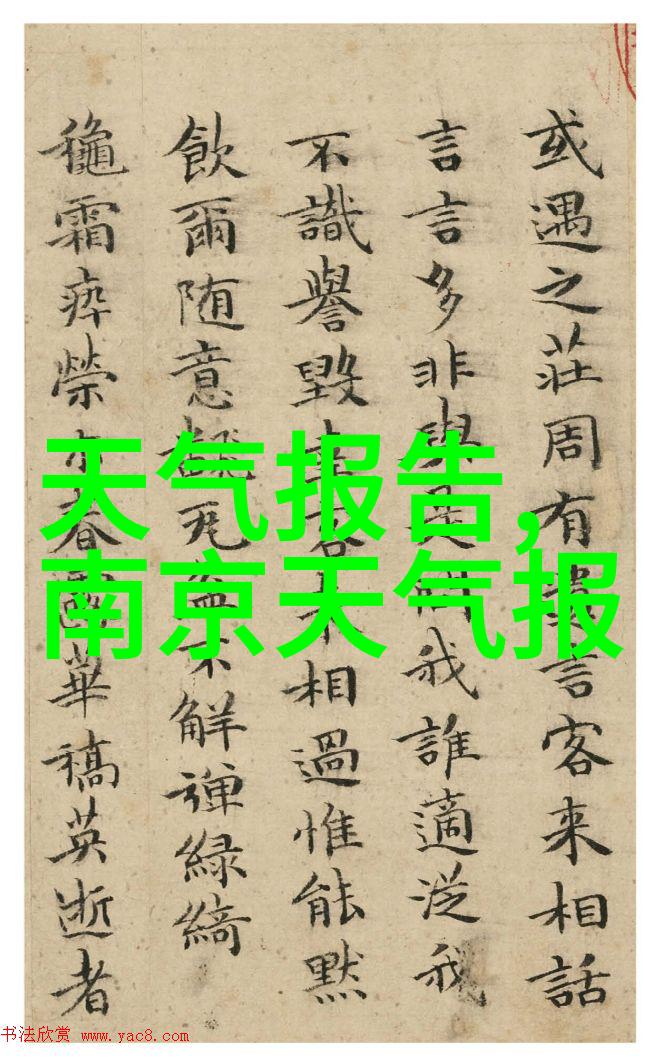 天气报告,
南京天气报
或遇之莊周有言客来相話
言言多非我誰適從我
不識譽毀相過惟能默
飲爾随意死不解彈緑綺
龝霜瘁榮春華稿英逝者
书法欣赏 www.yac8.com